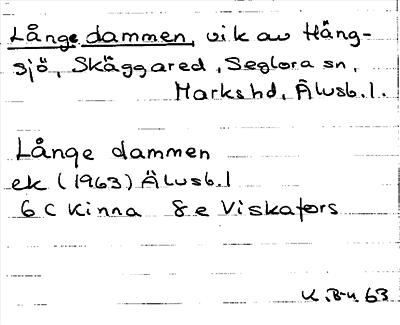 Långe dammen, vik av Häng-
sjö, Skäggared, Seglora sn,
Marks hd, Älvsb. l.
Långe dammen
ek (1963) Älvsb. l
6 C Kinna 8 e Viskafors
K. B-n. 63